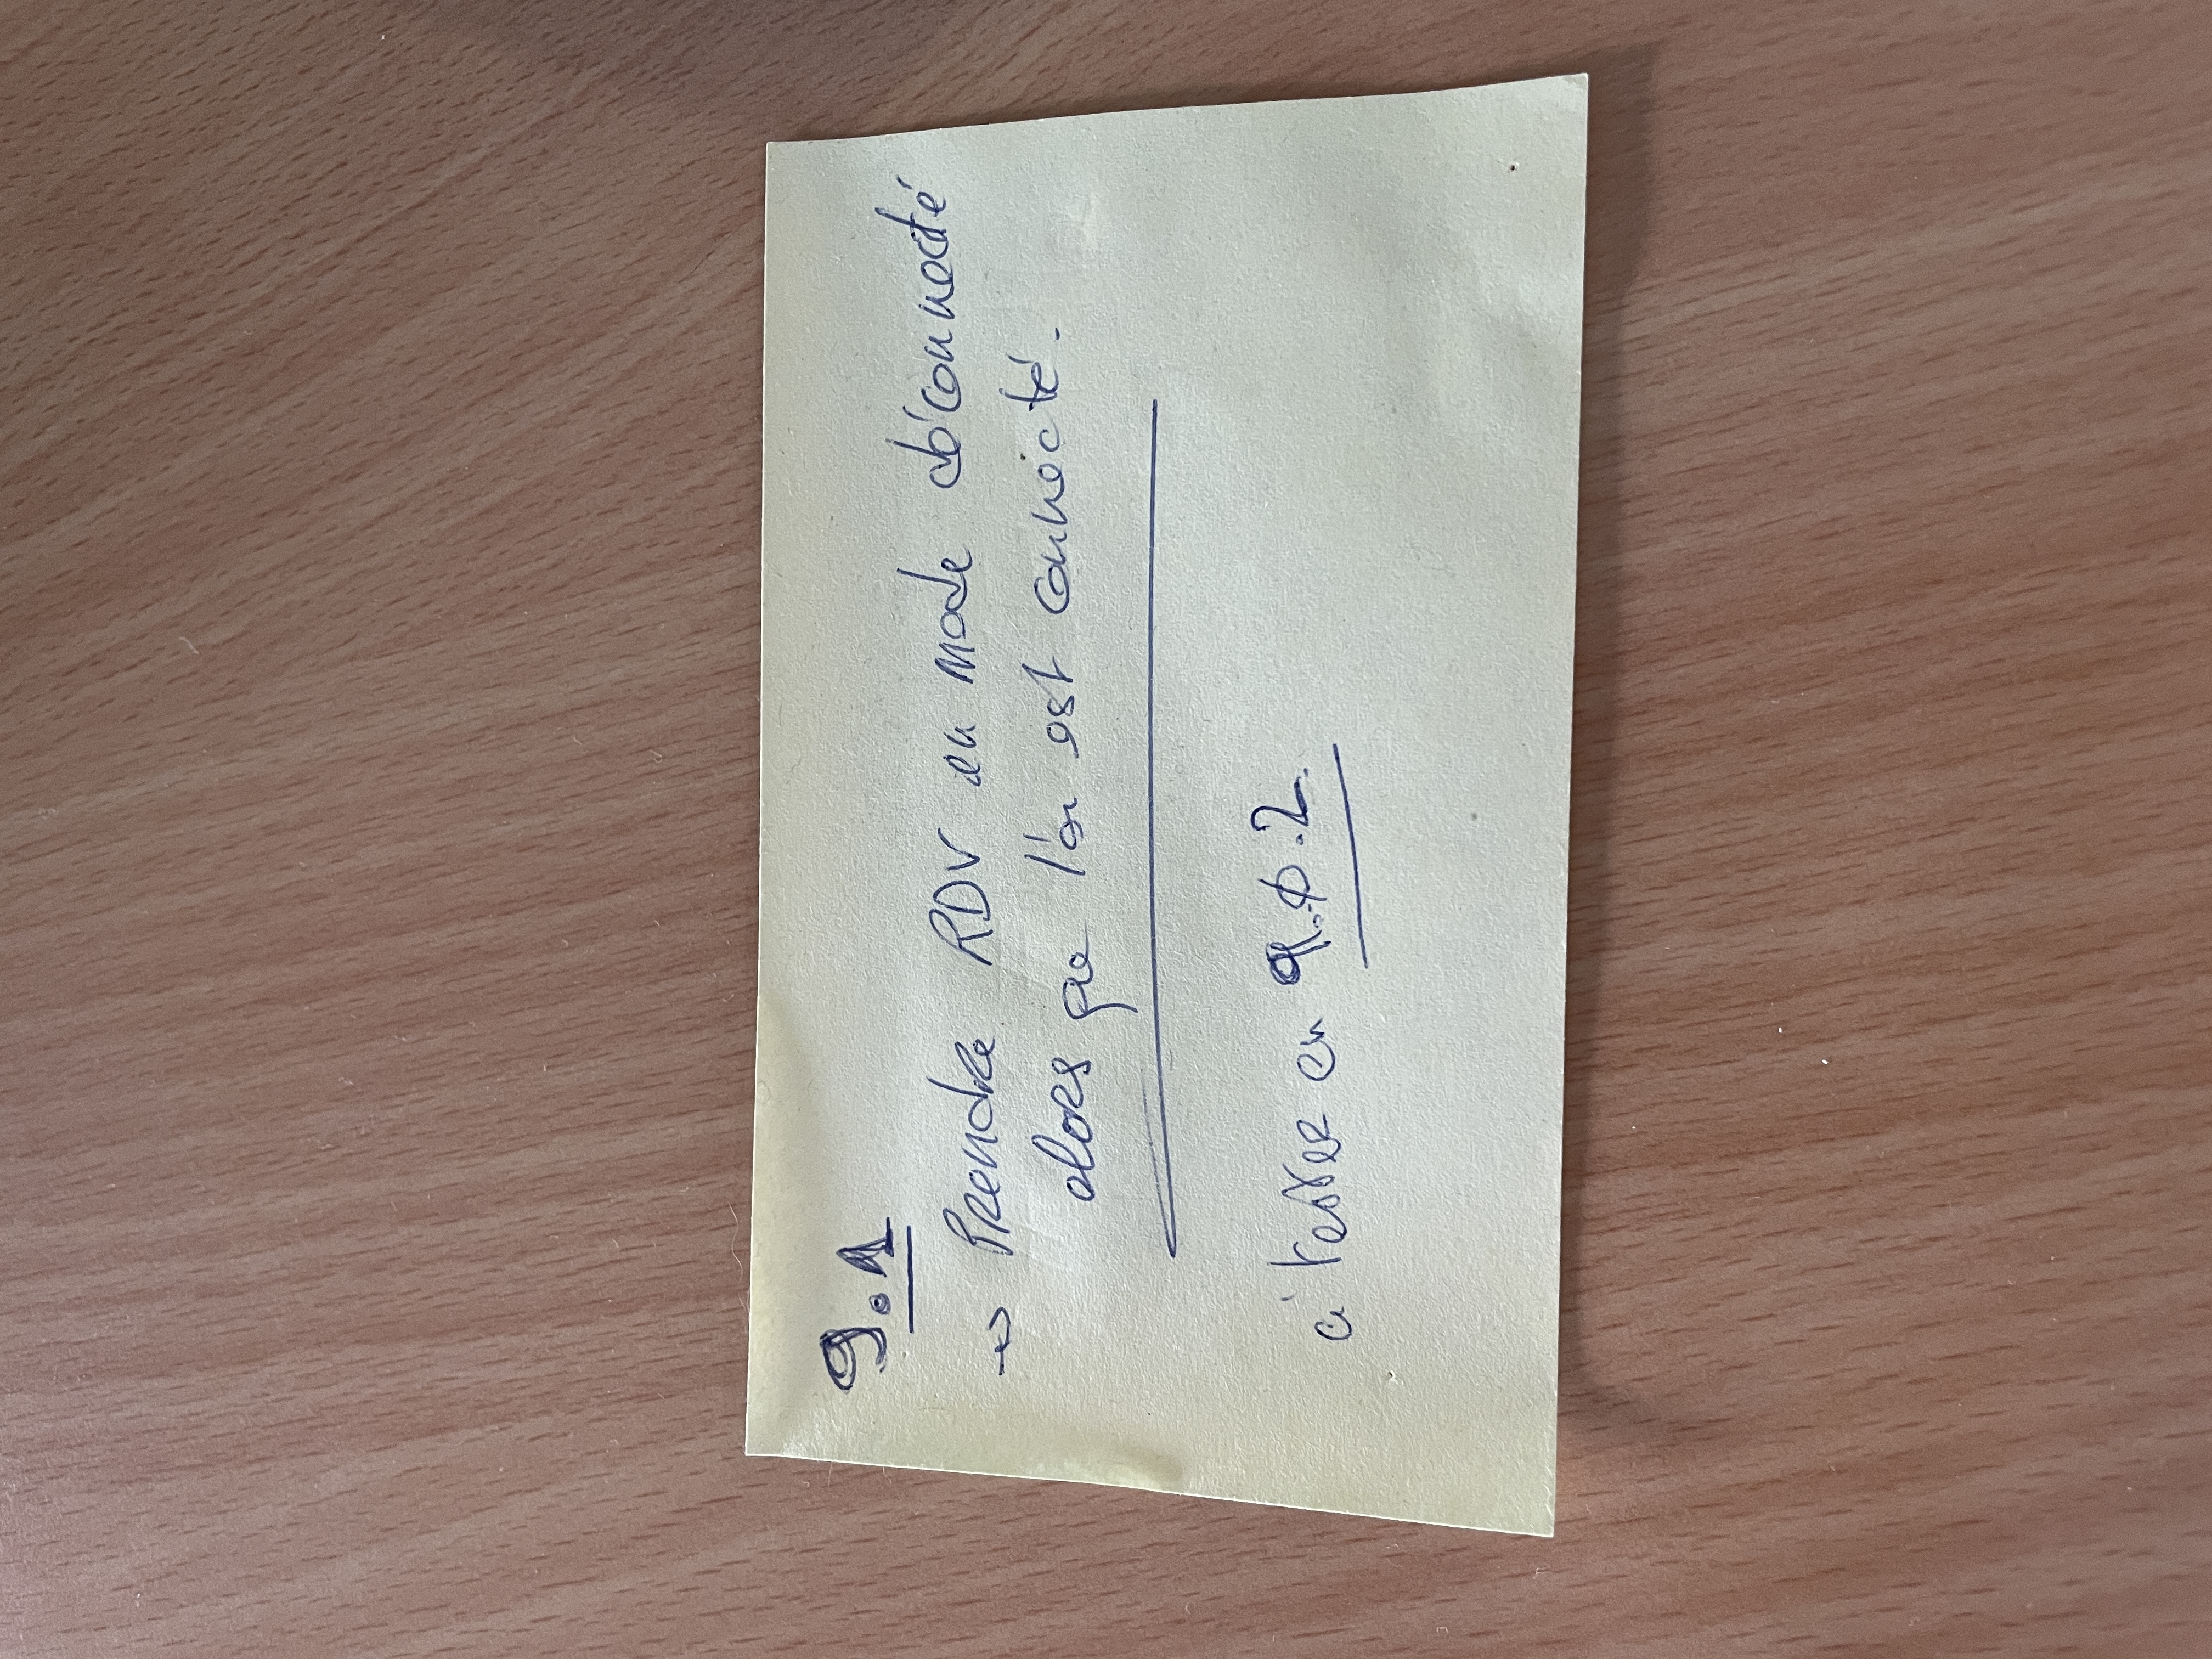 9.1
→ Prendre RDV en mode déconnecté
alors que l'on est connecté.
à tester en 9.0.2